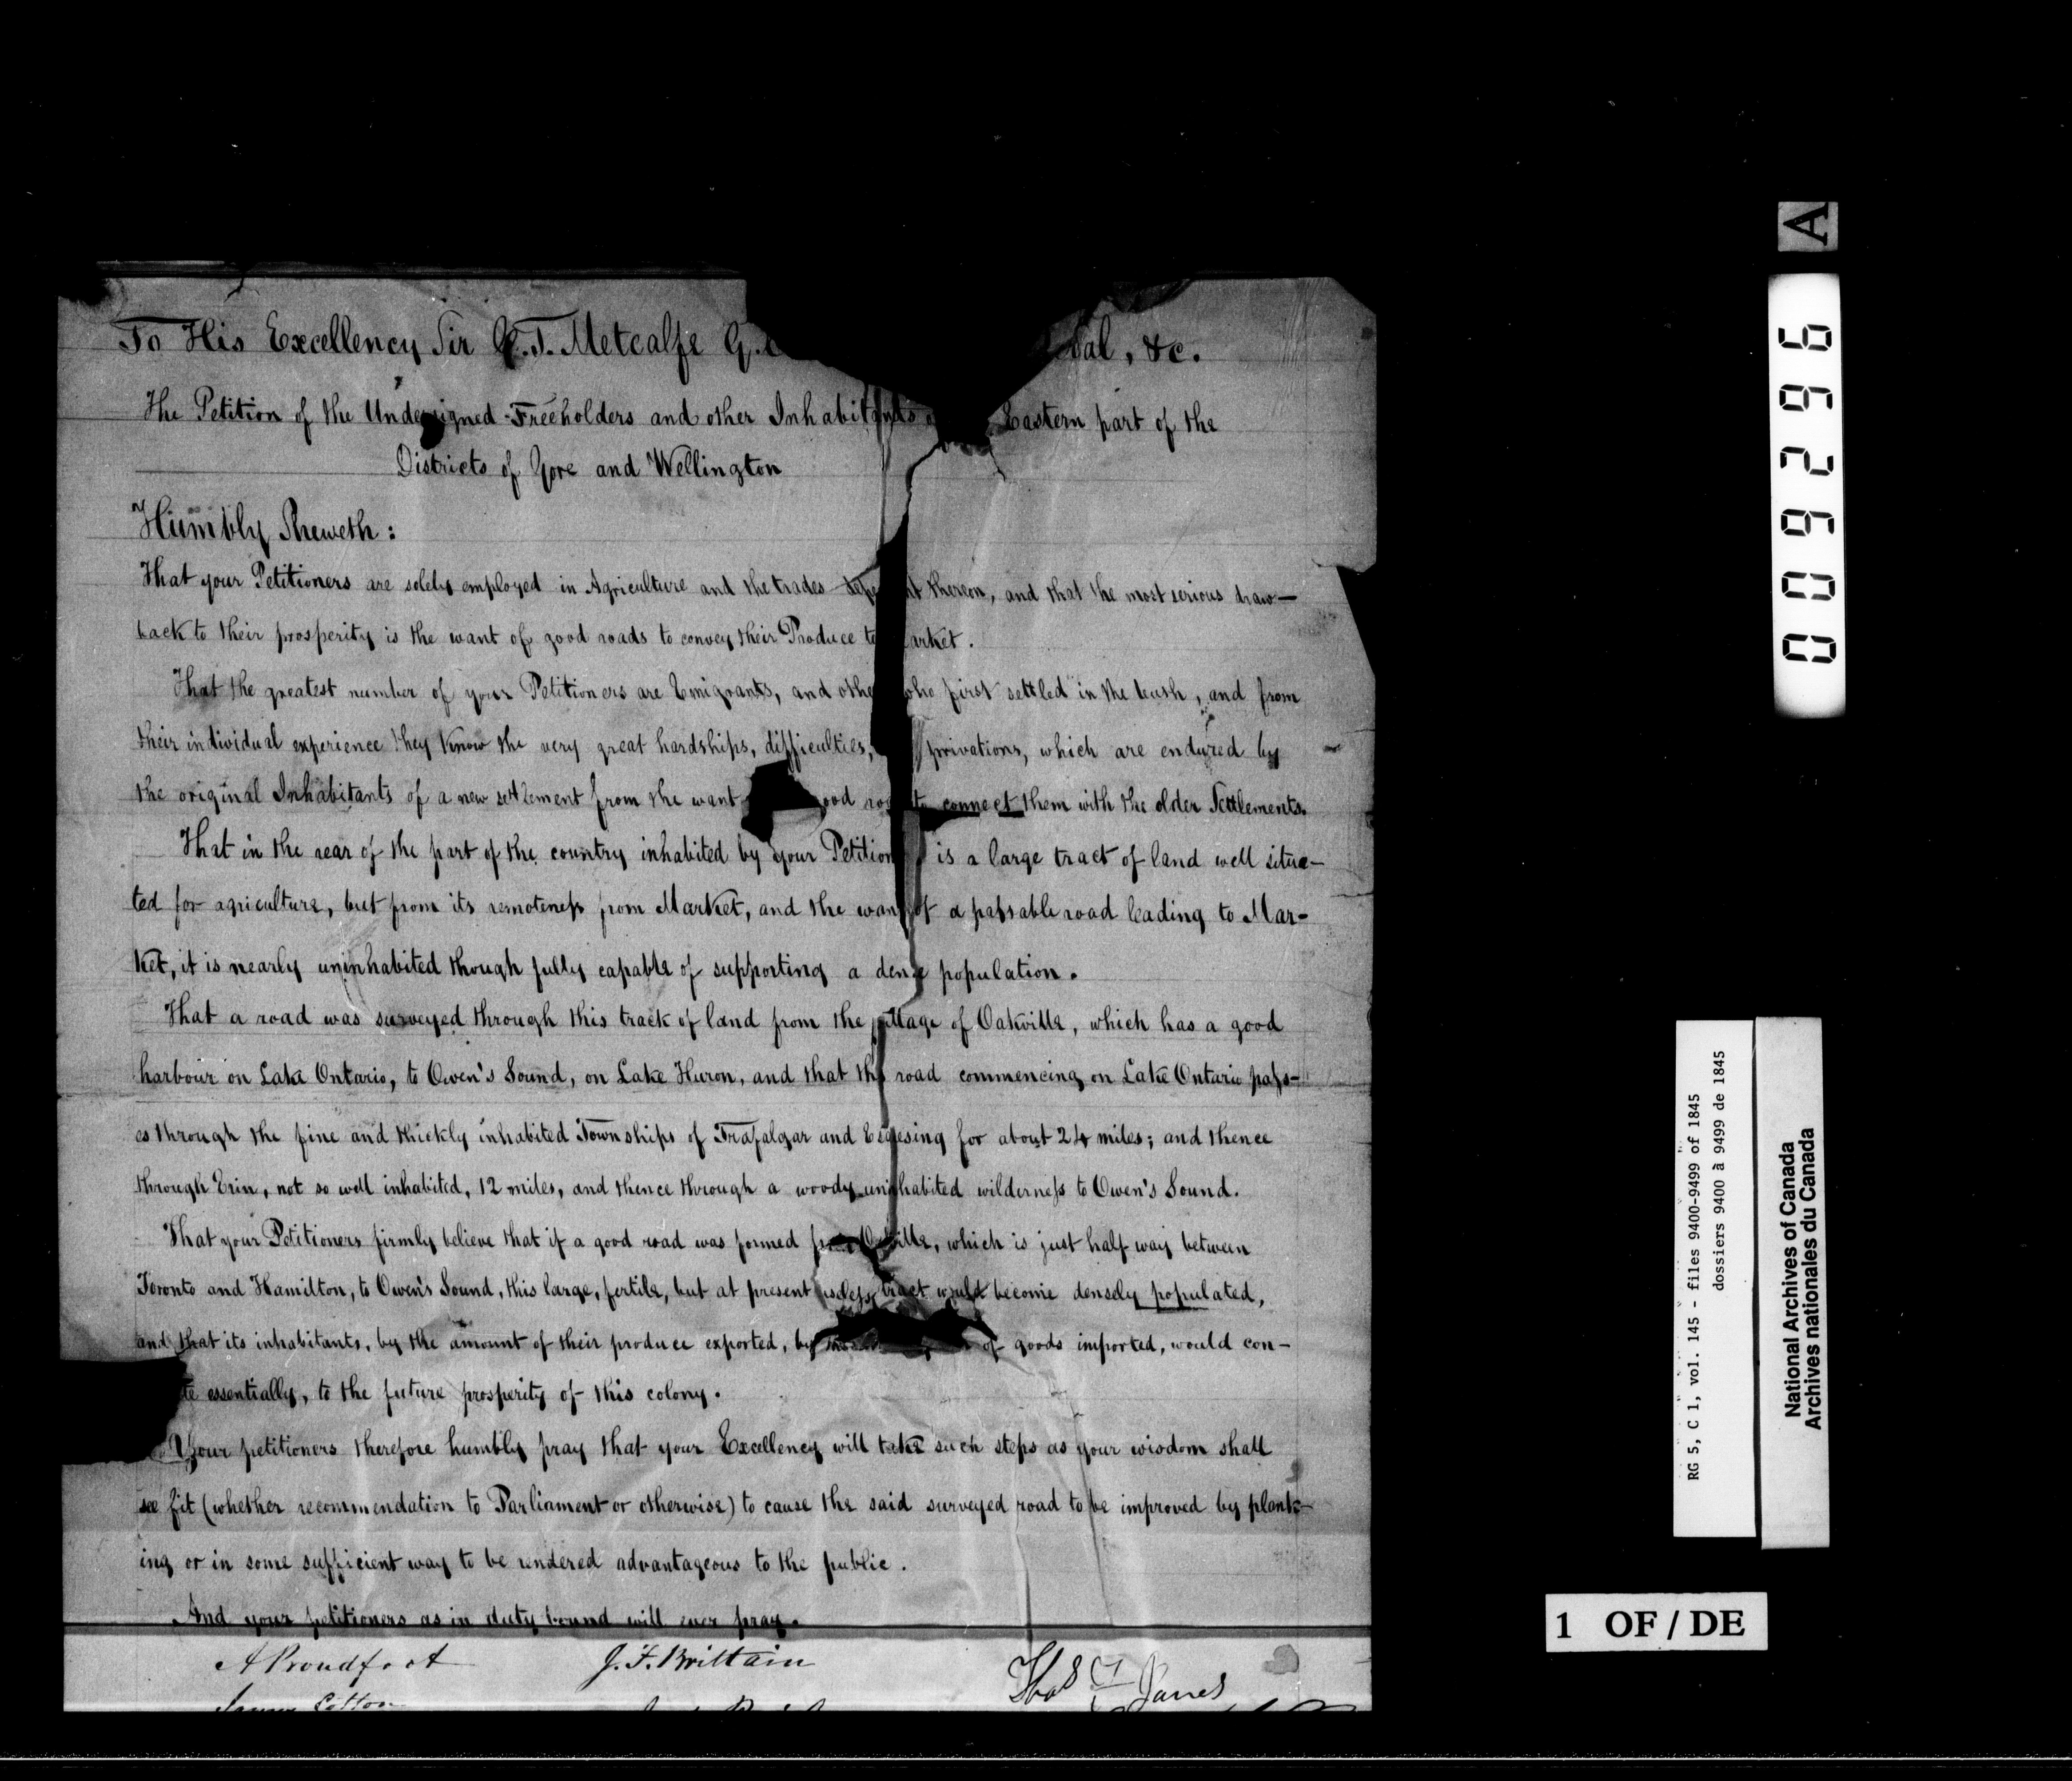 To His Excellency Sir C. T. Metcalfe G. &c.
The Petition of the Undersigned Freeholders and other Inhabitants Eastern part of the
Districts of Gore and Wellington
Humbly Sheweth:
That your Petitioners are solely employed in Agriculture and the trades thereon, and that the most serious draw—
back to their prosperity is the want of good roads to convey their Produce to arket.
That the greatest number of your Petitioners are Emigrants, and othe who first settled in the bush, and from
their individual experience they know the very great hardships, difficulties, privations, which are endured by
the original Inhabitants of a new settlement from the want ood to connect them with the older Settlements.
That in the rear of the part of the country inhabited by your Petition is a large tract of land well situa—
ted for agriculture, but from its remoteness from Market, and the want of a passable road leading to Mar-
ket, it is nearly uninhabited though fully capable of supporting a dense population.
That a road was surveyed through this track of land from the village of Oakville, which has a good
harbour on Lake Ontario, to Owen's Sound, on Lake Huron, and that this road commencing on Lake Ontario pass-
es through the fine and thickly inhabited Townships of Trafalgar and Esquesing for about 24 miles; and thence
through Erin, not so well inhabited, 12 miles, and thence through a woody uninhabited wilderness to Owen's Sound.
That your Petitioners firmly believe that if a good road was formed from Oakville, which is just half way between
Toronto and Hamilton, to Owen's Sound, this large, fertile, but at present useless tract would become densely populated,
and that its inhabitants, by the amount of their produce exported, by of goods imported, would con-
te essentially, to the future prosperity of this colony.
Your petitioners therefore humbly pray that your Excellency will take such steps as your wisdom shall
see fit (whether recommendation to Parliament or otherwise) to cause the said surveyed road to be improved by plank-
ing or in some sufficient way to be rendered advantageous to the public.
And your petitioners as in duty bound will ever pray.
A Proudfoot J. F. Brittain Thos Janes
Cotton
A
009296
RG 5, C 1, vol. 145 - files 9400-9499 of 1845
dossiers 9400 à 9499 de 1845
National Archives of Canada
Archives nationales du Canada
1 OF / DE